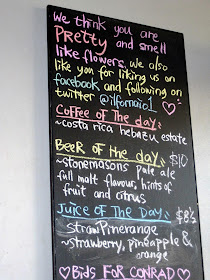 We think you are
Pretty and smell
like flowers. we also
like you for liking us on
facebook and following on
twitter @ilfornaio1
Coffee of The day:
~costa rica herbazu estate
Beer of the day: $10
~stonemasons pale ale
full malt flavour, hints of
fruit and citrus
Juice of The Day: $8's
strawPinerange
~strawberry, pineapple &
orange
Bids FOR CONRAD